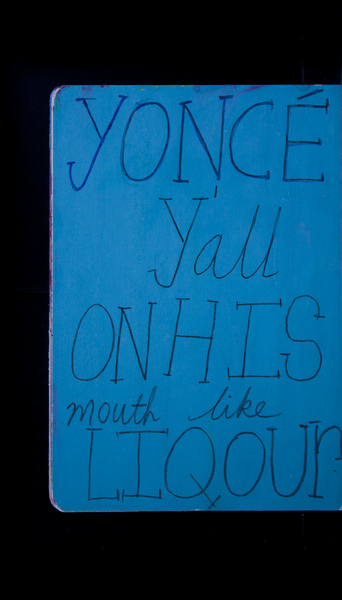 YONCÉ
y'all
ON HIS
mouth like
LIQOUr